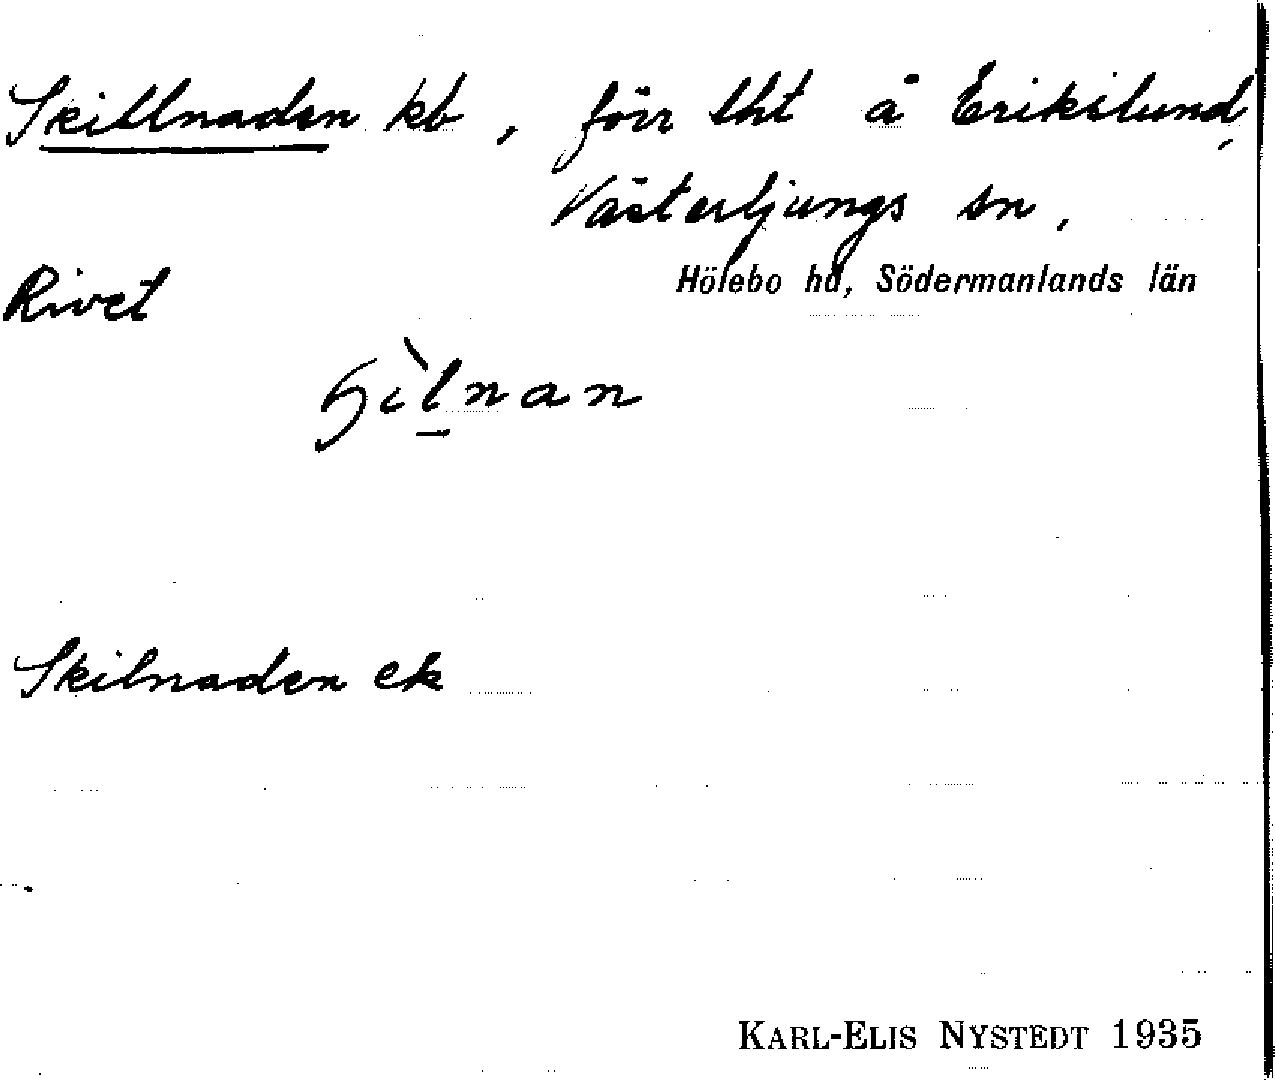 Skillnaden kb, förr lht å Erikslund,
Västerljungs sn,
Hölebo hd, Södermanlands län
Rivet
Skilnaden ek
KARL-ELIS NYSTEDT 1935